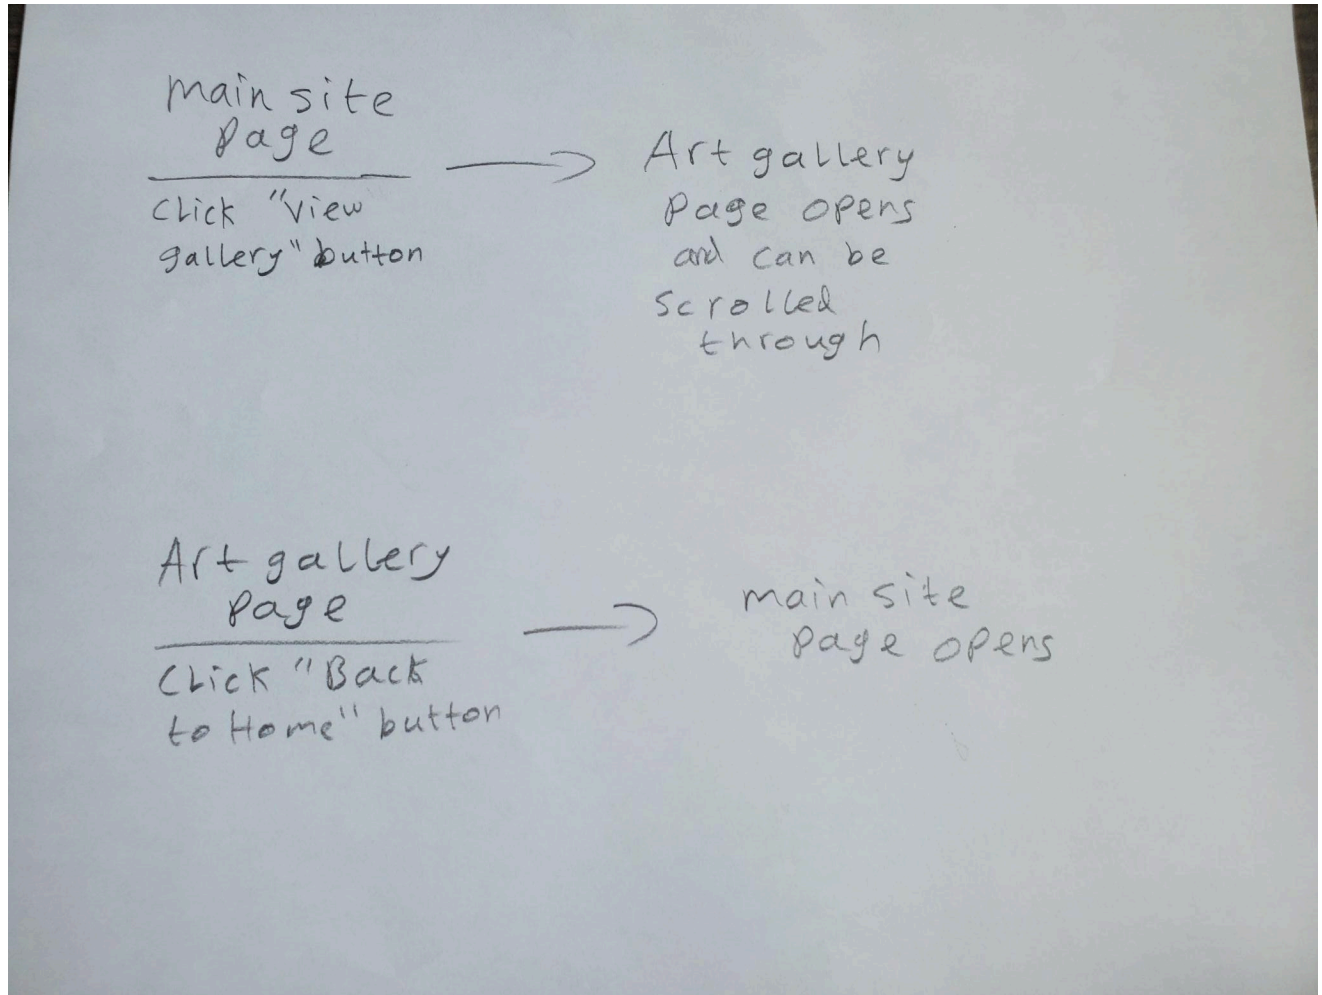 main site
page
Click "View
gallery" button
Art gallery
page opens
and can be
scrolled
through
Art gallery
page
Click "Back
to Home" button
main site
page opens